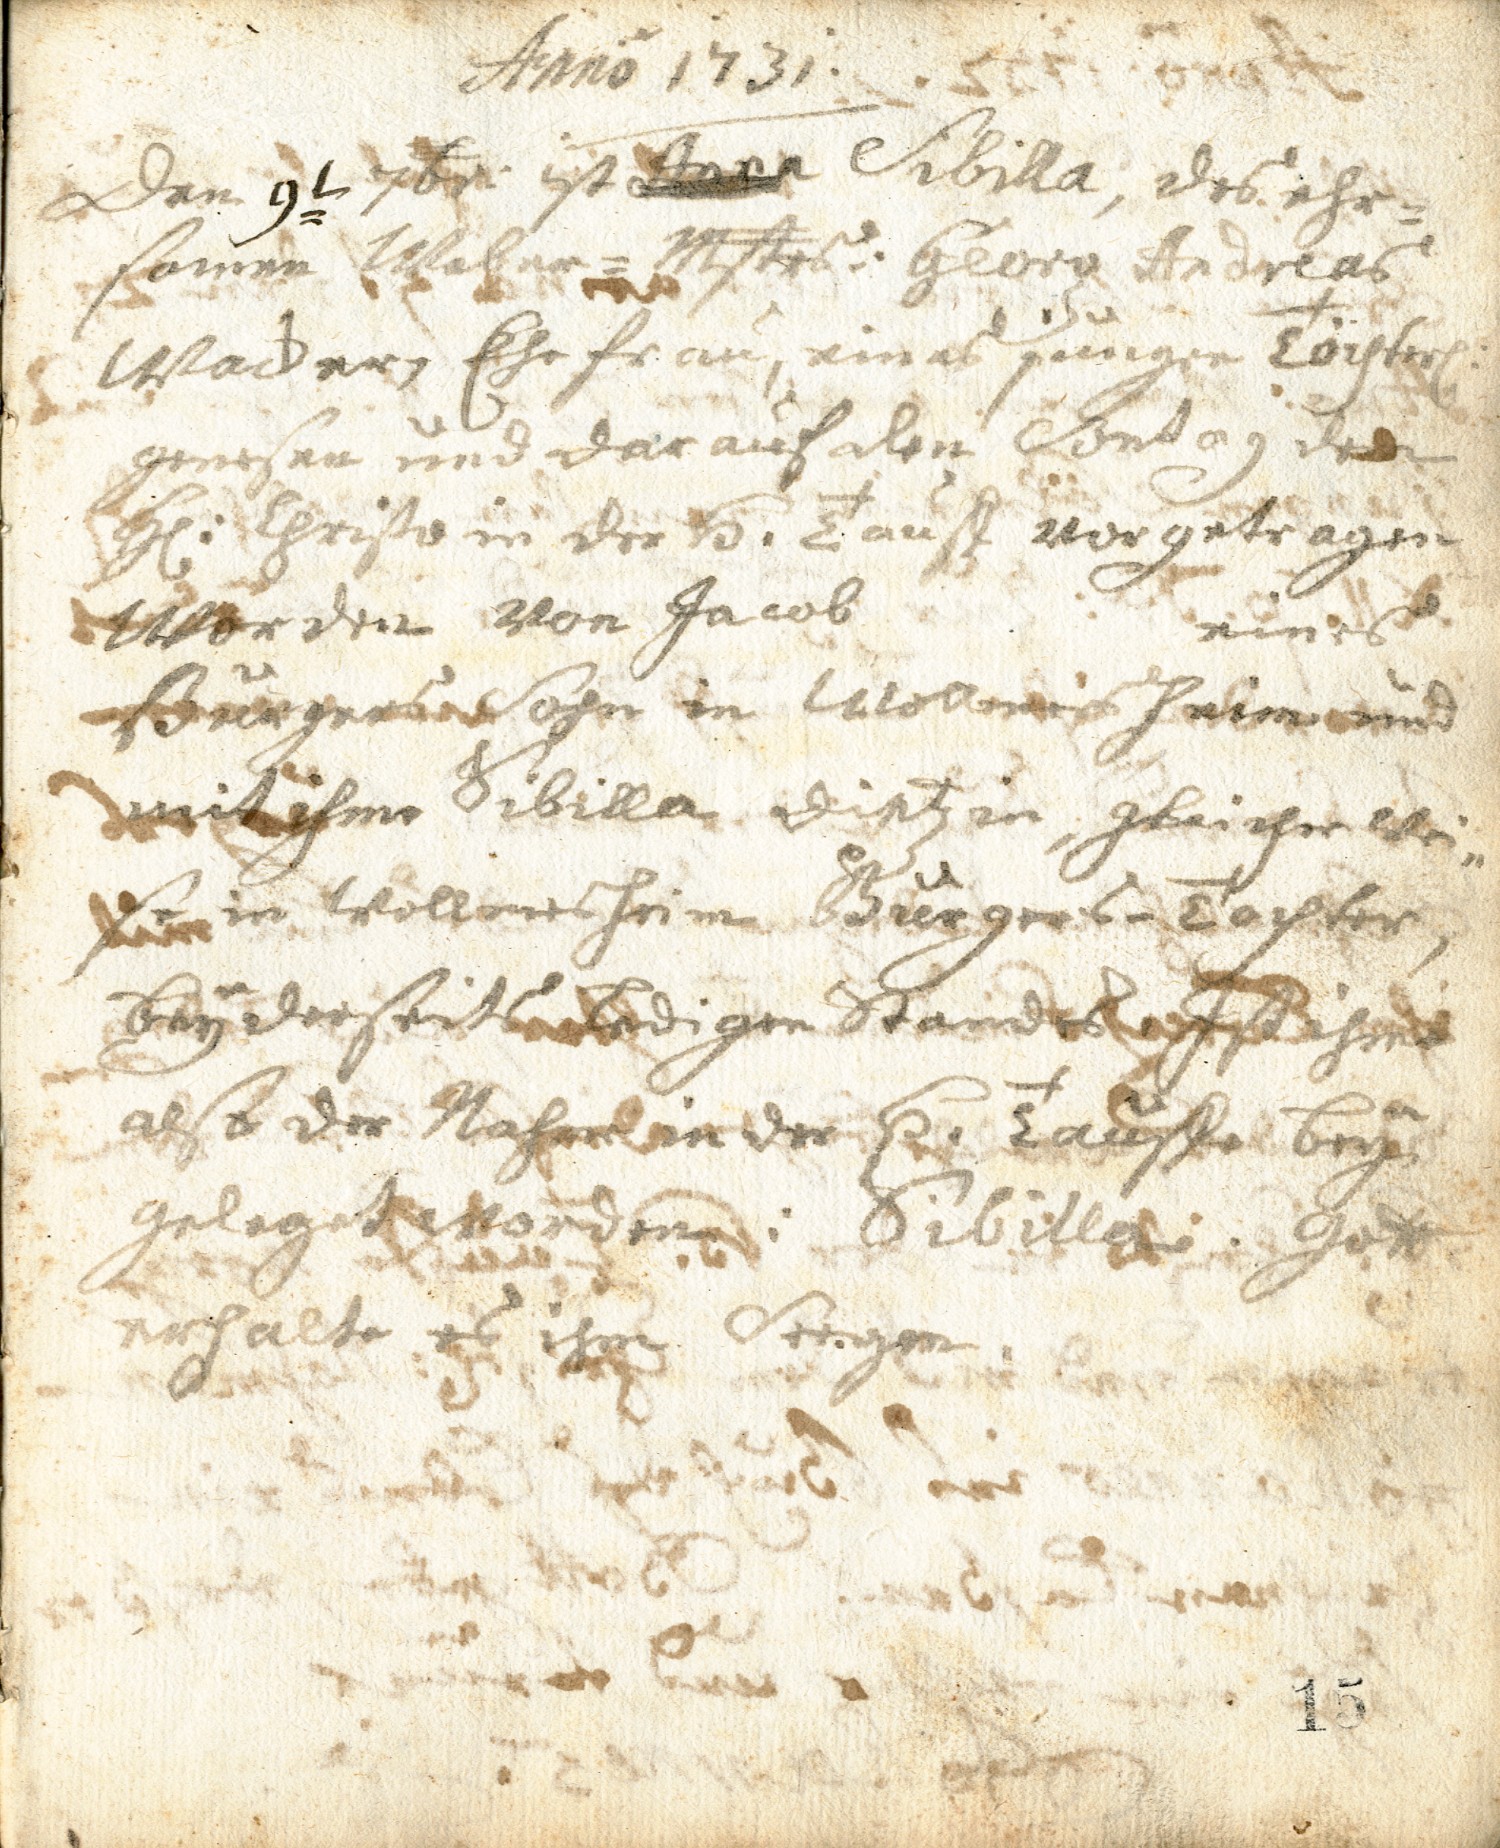 Anno 1731.
Den 9t 7br: ist Anna Sibilla, des ehr=
samen Weber=Mstrs: Georg Andreas
Wackers Ehefrau, eines jungen Töchterl:
genesen und darauf den Sontag dem
H: Christo in der H. Tauff vorgetragen
worden von Jacob eines
Burgers Sohn in Wollmesheim und
mit ihme Sibilla Dietzin, gleicher Wei„
se in Wollmesheim Burgers-Tochter,
beyderseits ledigen Standes. Ist ihme
also der Nahme in der H. Tauffe bey
geleget worden: Sibilla. Gott
erhalte es ihm Seegen.
15